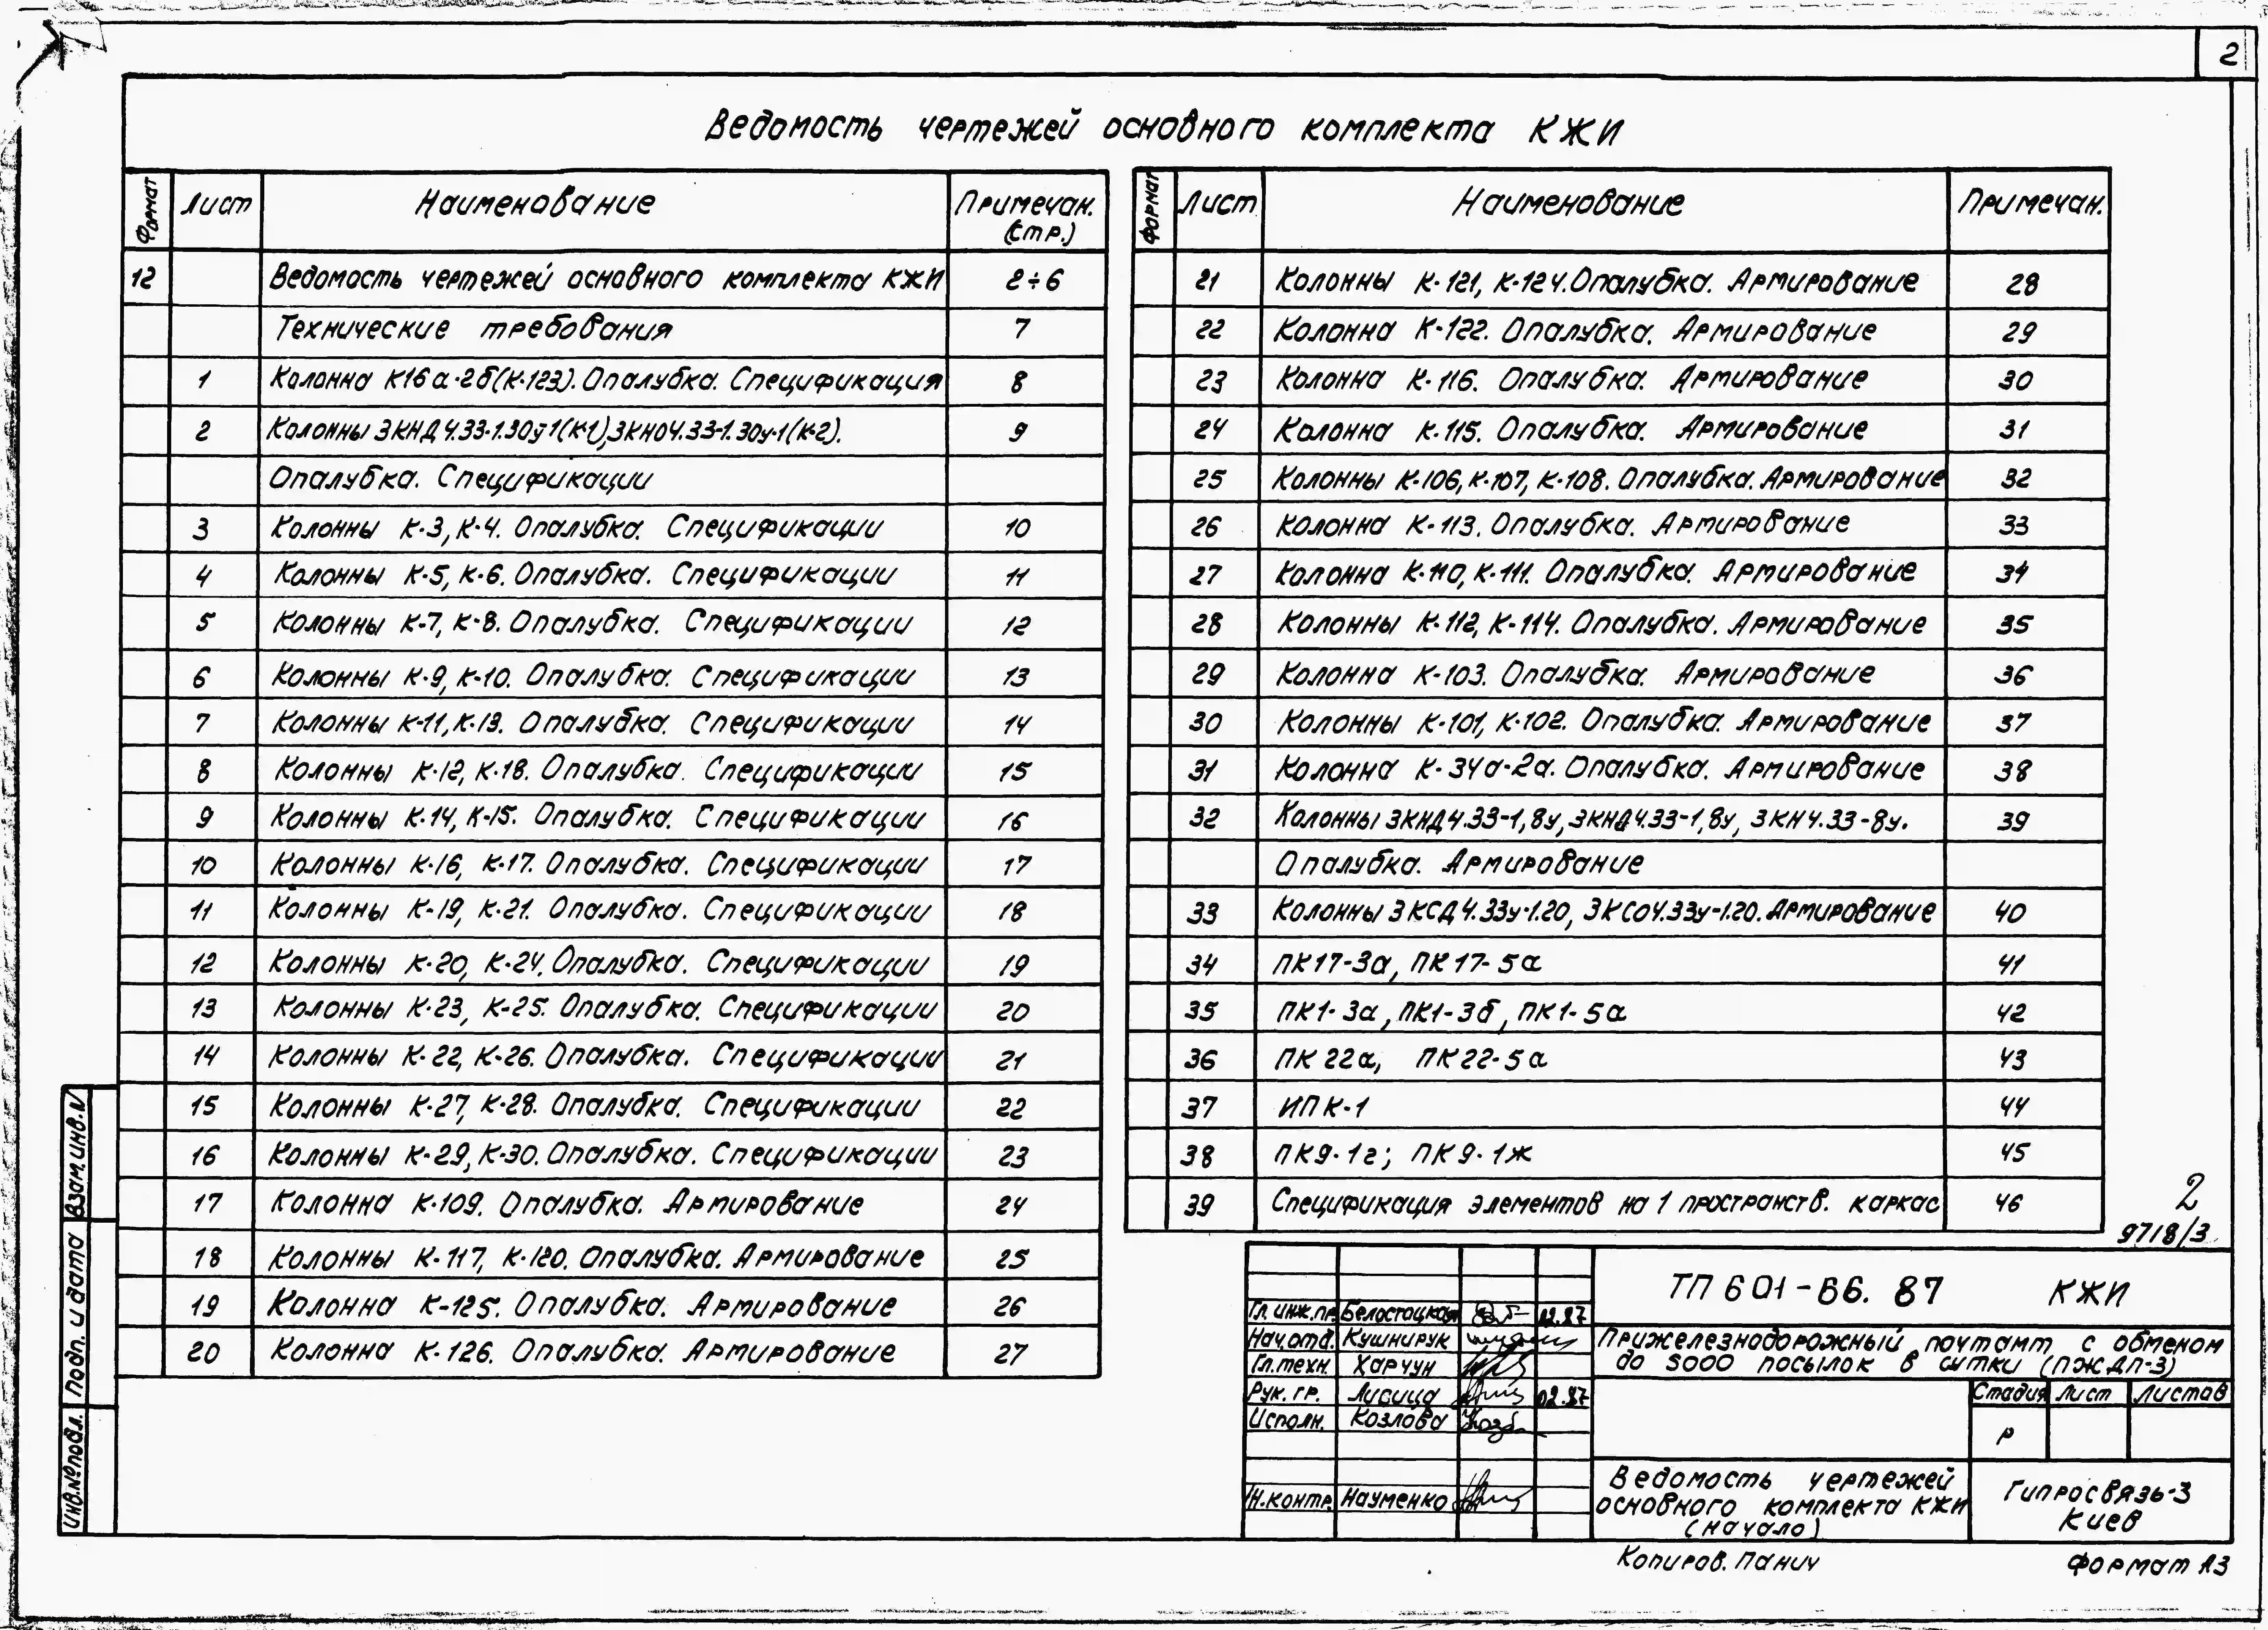 2
Ведомость чертежей основного комплекта КЖИ
Формат Лист Наименование Примечан. (стр.)
12 Ведомость чертежей основного комплекта КЖИ 2÷6
Технические требования 7
1 Колонна К16а-2б(К-123). Опалубка. Спецификация 8
2 Колонны 3КНД4.33-1.30у-1(К-1), 3КНО4.33-1.30у-1(К-2). 9
Опалубка. Спецификации
3 Колонны К-3, К-4. Опалубка. Спецификации 10
4 Колонны К-5, К-6. Опалубка. Спецификации 11
5 Колонны К-7, К-8. Опалубка. Спецификации 12
6 Колонны К-9, К-10. Опалубка. Спецификации 13
7 Колонны К-11, К-13. Опалубка. Спецификации 14
8 Колонны К-12, К-18. Опалубка. Спецификации 15
9 Колонны К-14, К-15. Опалубка. Спецификации 16
10 Колонны К-16, К-17. Опалубка. Спецификации 17
11 Колонны К-19, К-21. Опалубка. Спецификации 18
12 Колонны К-20, К-24. Опалубка. Спецификации 19
13 Колонны К-23, К-25. Опалубка. Спецификации 20
14 Колонны К-22, К-26. Опалубка. Спецификации 21
15 Колонны К-27, К-28. Опалубка. Спецификации 22
16 Колонны К-29, К-30. Опалубка. Спецификации 23
17 Колонна К-109. Опалубка. Армирование 24
18 Колонны К-117, К-120. Опалубка. Армирование 25
19 Колонна К-125. Опалубка. Армирование 26
20 Колонна К-126. Опалубка. Армирование 27
Формат Лист Наименование Примечан.
21 Колонны К-121, К-124. Опалубка. Армирование 28
22 Колонна К-122. Опалубка. Армирование 29
23 Колонна К-116. Опалубка. Армирование 30
24 Колонна К-115. Опалубка. Армирование 31
25 Колонны К-106, К-107, К-108. Опалубка. Армирование 32
26 Колонна К-113. Опалубка. Армирование 33
27 Колонна К-110, К-111. Опалубка. Армирование 34
28 Колонны К-112, К-114. Опалубка. Армирование 35
29 Колонна К-103. Опалубка. Армирование 36
30 Колонны К-101, К-102. Опалубка. Армирование 37
31 Колонна К-34а-2а. Опалубка. Армирование 38
32 Колонны 3КНД4.33-1,8у, 3КНД4.33-1,8у, 3КН4.33-8у. 39
Опалубка. Армирование
33 Колонны 3КСД4.33у-1.20, 3КСО4.33у-1.20. Армирование 40
34 ПК17-3а, ПК17-5а 41
35 ПК1-3а, ПК1-3б, ПК1-5а 42
36 ПК22а, ПК22-5а 43
37 ИПК-1 44
38 ПК9-1г; ПК9-1ж 45
39 Спецификация элементов на 1 пространств. каркас 46
2
9718/3
Взам.инв.N
Подп. и дата
Инв.№подл.
ТП 601-66.87 КЖИ
Гл.инж.пр. Белостоцкая 02.87
Нач.отд. Кушнирук
Гл.техн. Харчун
Рук. гр. Лившиц 02.87
Исполн. Козлова
Н.контр. Науменко
Прижелезнодорожный почтамт с обменом
до 5000 посылок в сутки (ПЖДП-3)
Стадия Лист Листов
Р
Ведомость чертежей
основного комплекта КЖИ
(начало)
Гипросвязь-3
Киев
Копиров. Панич
Формат А3